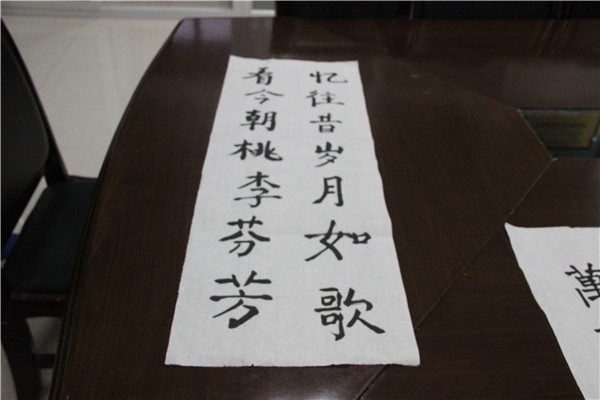 忆往昔岁月如歌
看今朝桃李芬芳
萬